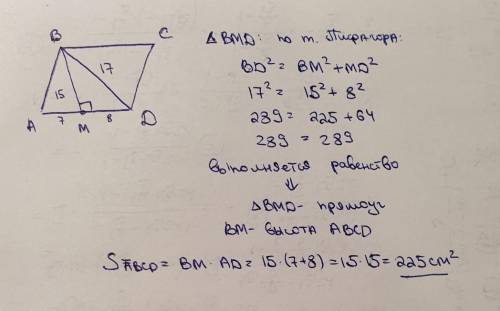 B C
17
15
A 7 M 8 D
△BMD: по т. Пифагора:
BD² = BM² + MD²
17² = 15² + 8²
289 = 225 + 64
289 = 289
выполняется равенство
⇓
△BMD - прямоуг
BM - высота ABCD
SABCD = BM · AD = 15 · (7+8) = 15 · 15 = 225 см²